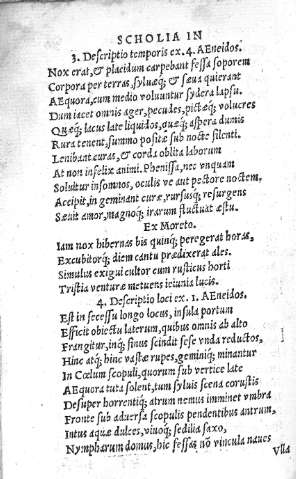 SCHOLIA IN
3. Descriptio temporis ex. 4. AEneidos.
Nox erat, & placidum carpebant fessa soporem
Corpora per terras, syluæq; & sæua quierant
AEquora, cum medio voluuntur sydera lapsu.
Dum iacet omnis ager, pecudes, pictæq; volucres
Quæq; lacus late liquidos, quæq; aspera dumis
Rura tenent, summo positæ sub nocte silenti.
Lenibant curas, & corda oblita laborum
At non infelix animi Phenissa, nec vnquam
Soluitur in somnos, oculis ve aut pectore noctem,
Accipit, in geminant curæ, rursusq; resurgens
Sæuit amor, magnoq; irarum fluctuat æstu.
Ex Moreto.
Iam nox hibernas bis quinq; peregerat horas,
Excubitorq; diem cantu prædixerat ales.
Simulus exigui cultor cum rusticus horti
Tristia venturæ metuens ieiunia lucis.
4. Descriptio loci ex. 1. AEneidos.
Est in secessu longo locus, insula portum
Efficit obiectu laterum, quibus omnis ab alto
Frangitur, inq; sinus scindit sese vnda reductos,
Hinc atq; hinc vastæ rupes, geminiq; minantur
In Cœlum scopuli, quorum sub vertice late
AEquora tuta solent, tum syluis scena corustis
Desuper horrentiq; atrum nemus imminet vmbra
Fronte sub aduersa scopulis pendentibus antrum,
Intus aquæ dulces, viuoq; sedilia saxo,
Nympharum domus, hic fessas nõ vincula naues
Vlla